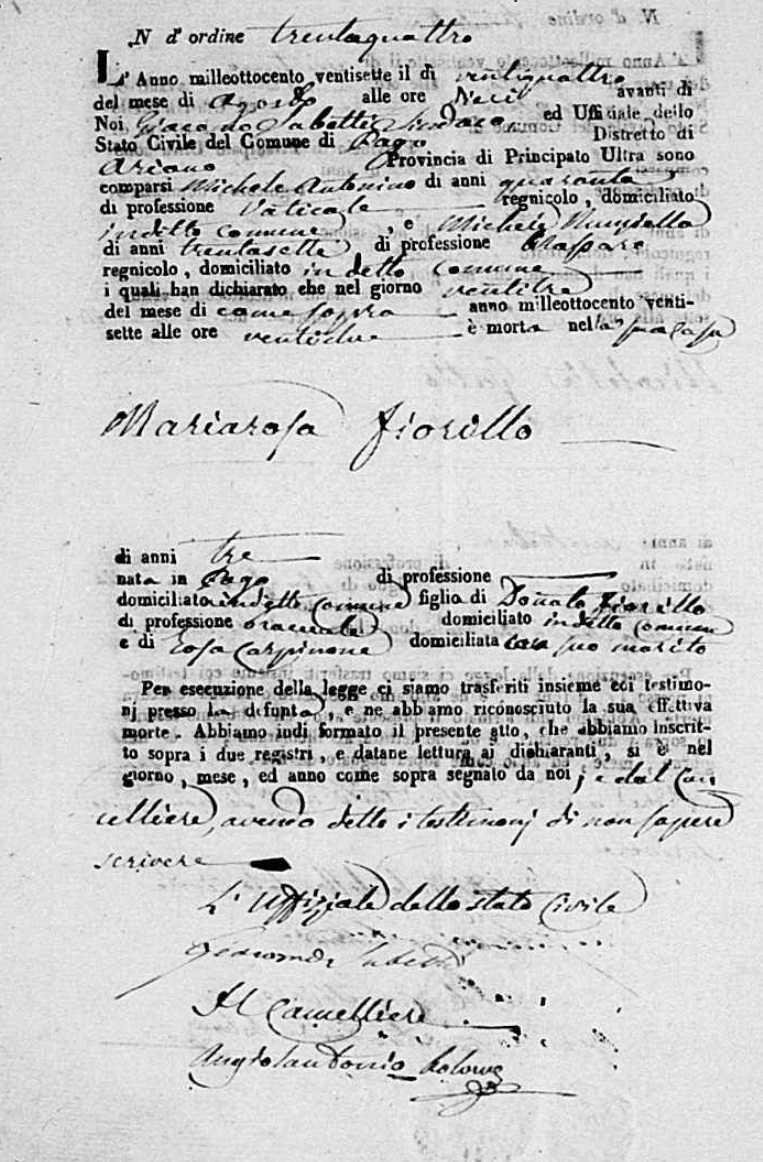 N d' ordine trentaquattro
L' Anno milleottocento ventisette il di ventiquattro
del mese di Agosto alle ore dieci avanti di
Noi Giacomo Sabetti Sindaco ed Uffiziale dello
Stato Civile del Comune di Pago Distretto di
Ariano Provincia di Principato Ultra sono
comparsi Michele Antonino di anni quaranta
di professione Vaticale regnicolo, domiciliato
in detto comune, e Michele
di anni trentasette di professione
regnicolo, domiciliato in detto comune
i quali han dichiarato che nel giorno ventitre
del mese di come sopra anno milleottocento venti-
sette alle ore ventidue è morta nella sua casa
Mariarosa Fiorillo
di anni tre
nata in Pago di professione
domiciliato in detto comune figlio di Donato Fiorillo
di professione bracciale domiciliato in detto comune
e di Rosa Carpinone domiciliata con suo marito
Per esecuzione della legge ci siamo trasferiti insieme coi testimo-
nj presso la defunta, e ne abbiamo riconosciuto la sua effettiva
morte. Abbiamo indi formato il presente atto, che abbiamo inscrit-
to sopra i due registri, e datane lettura ai dichiaranti, si è nel
giorno, mese, ed anno come sopra segnato da noi, e dal Can
celliere, avendo detto i testimonj di non sapere
scrivere
L' Uffiziale dello stato Civile
Giacomo Sabetti
Il Cancelliere
Angiolantonio